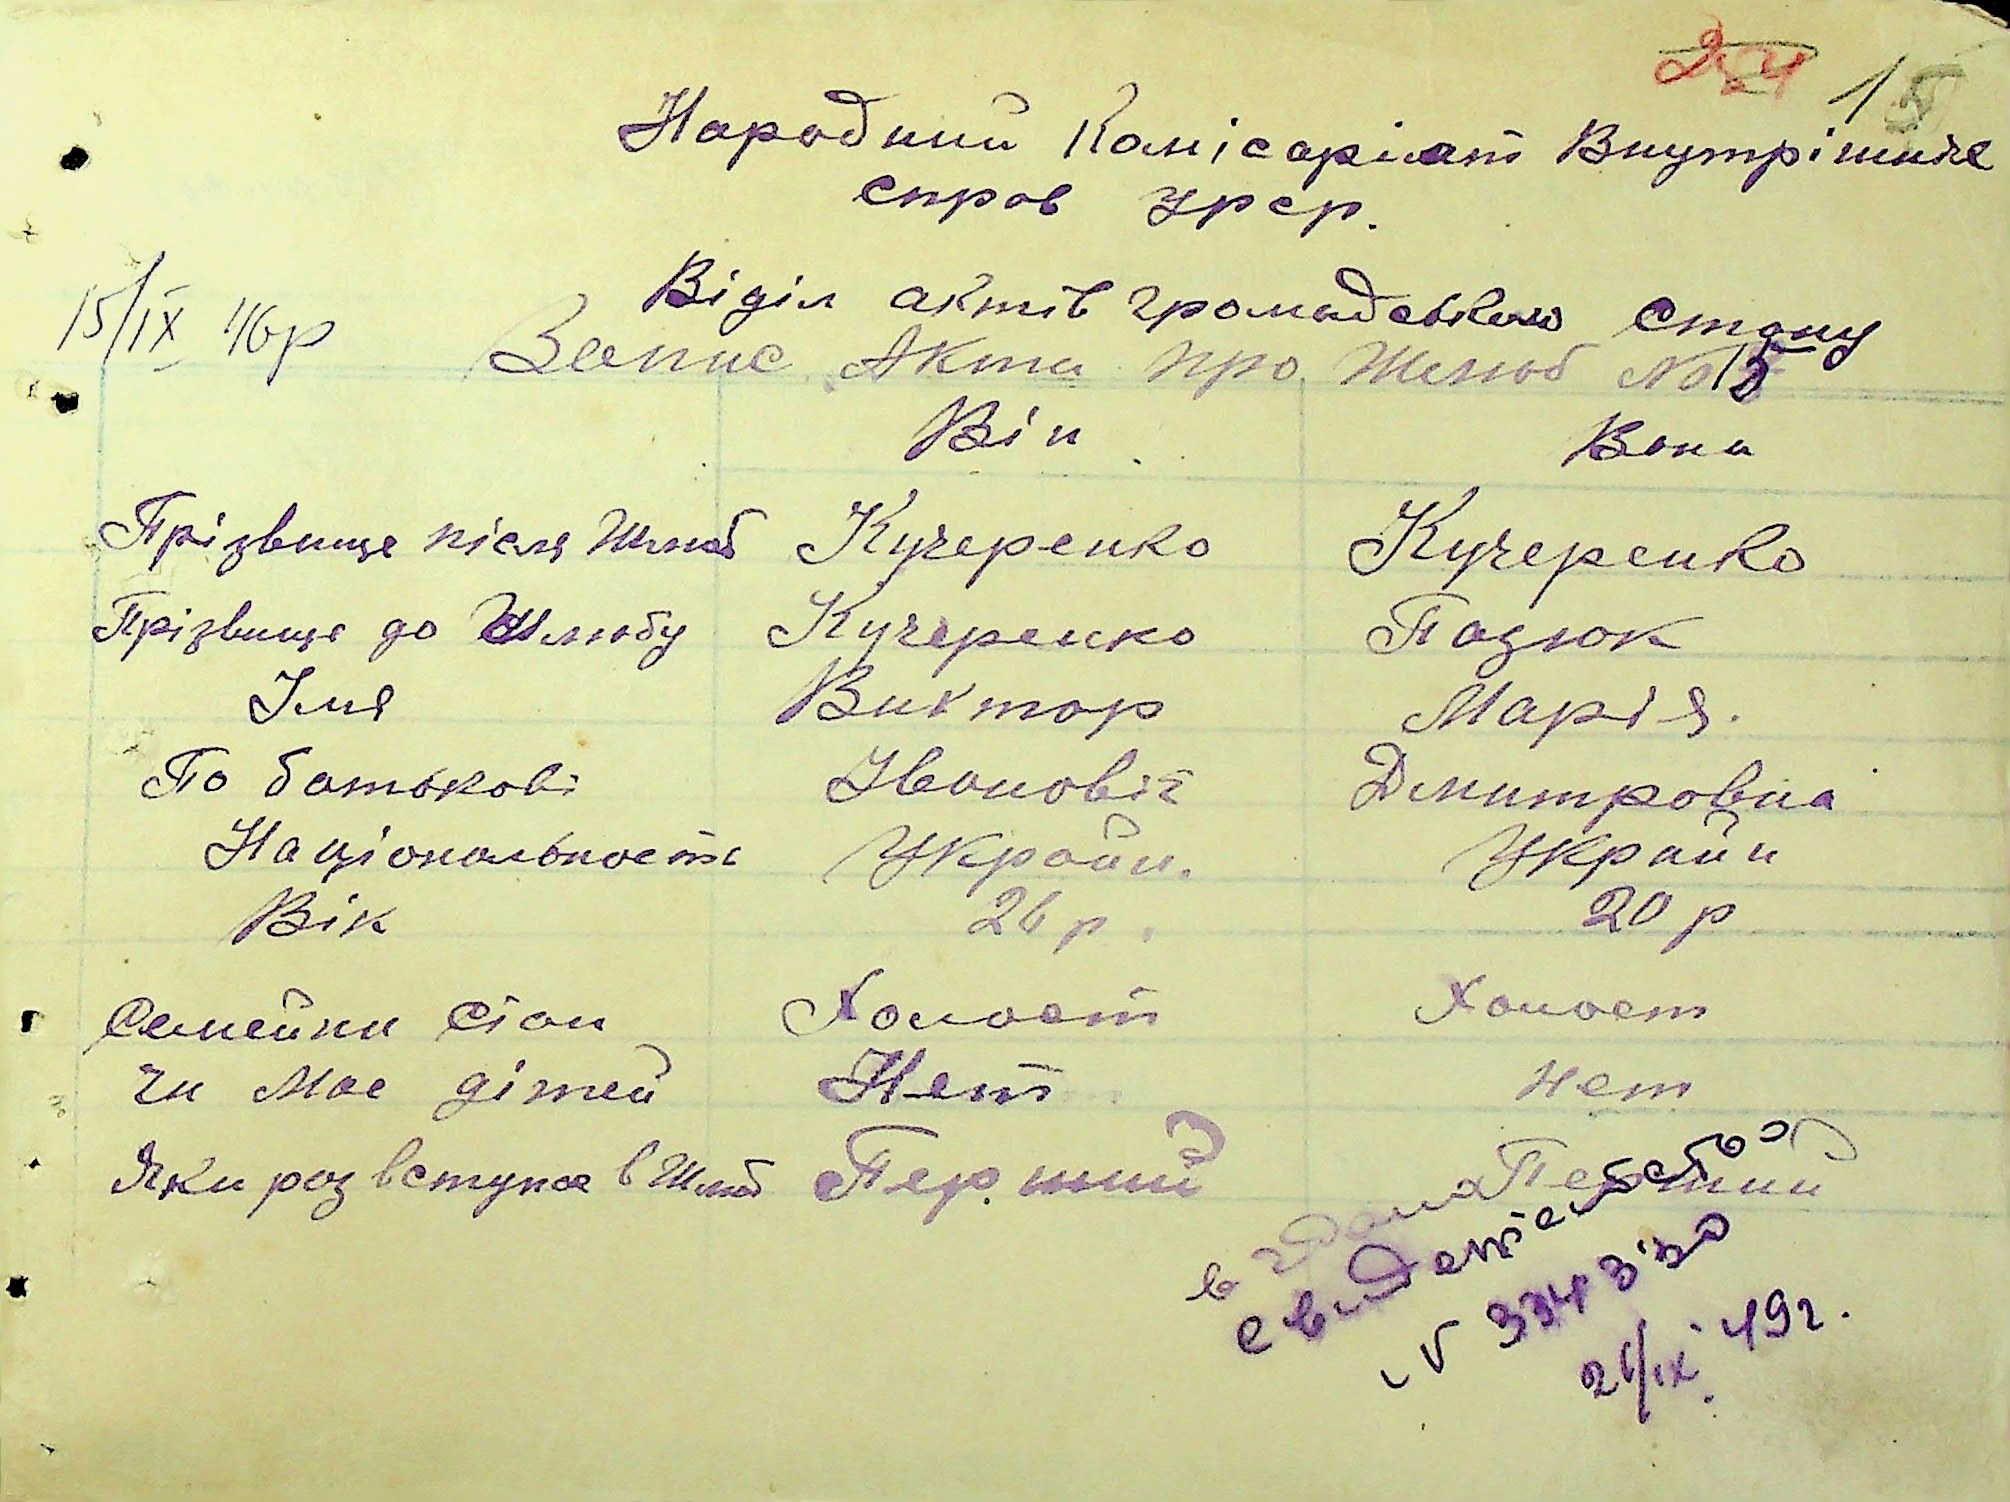 15
Народний Комісаріат Внутрішніх
справ УРСР.
Віділ актів громадського стану
15/IX 46р
Запис Акта про Шлюб №15
Він Вона
Прізвище після Шлюб Кучеренко Кучеренко
Прізвище до Шлюбу Кучеренко Подзюк
Імя Виктор Марія.
По батькові Івановіч Дмитровна
Національность Україн. Україн
Вік 26 р. 20 р
Семейни стан Холост Холост
Чи Має дітей Нет нет
Яки раз вступає в Шлюб Перший Перший
свидетельство
№ 334
21/IX. 49г.